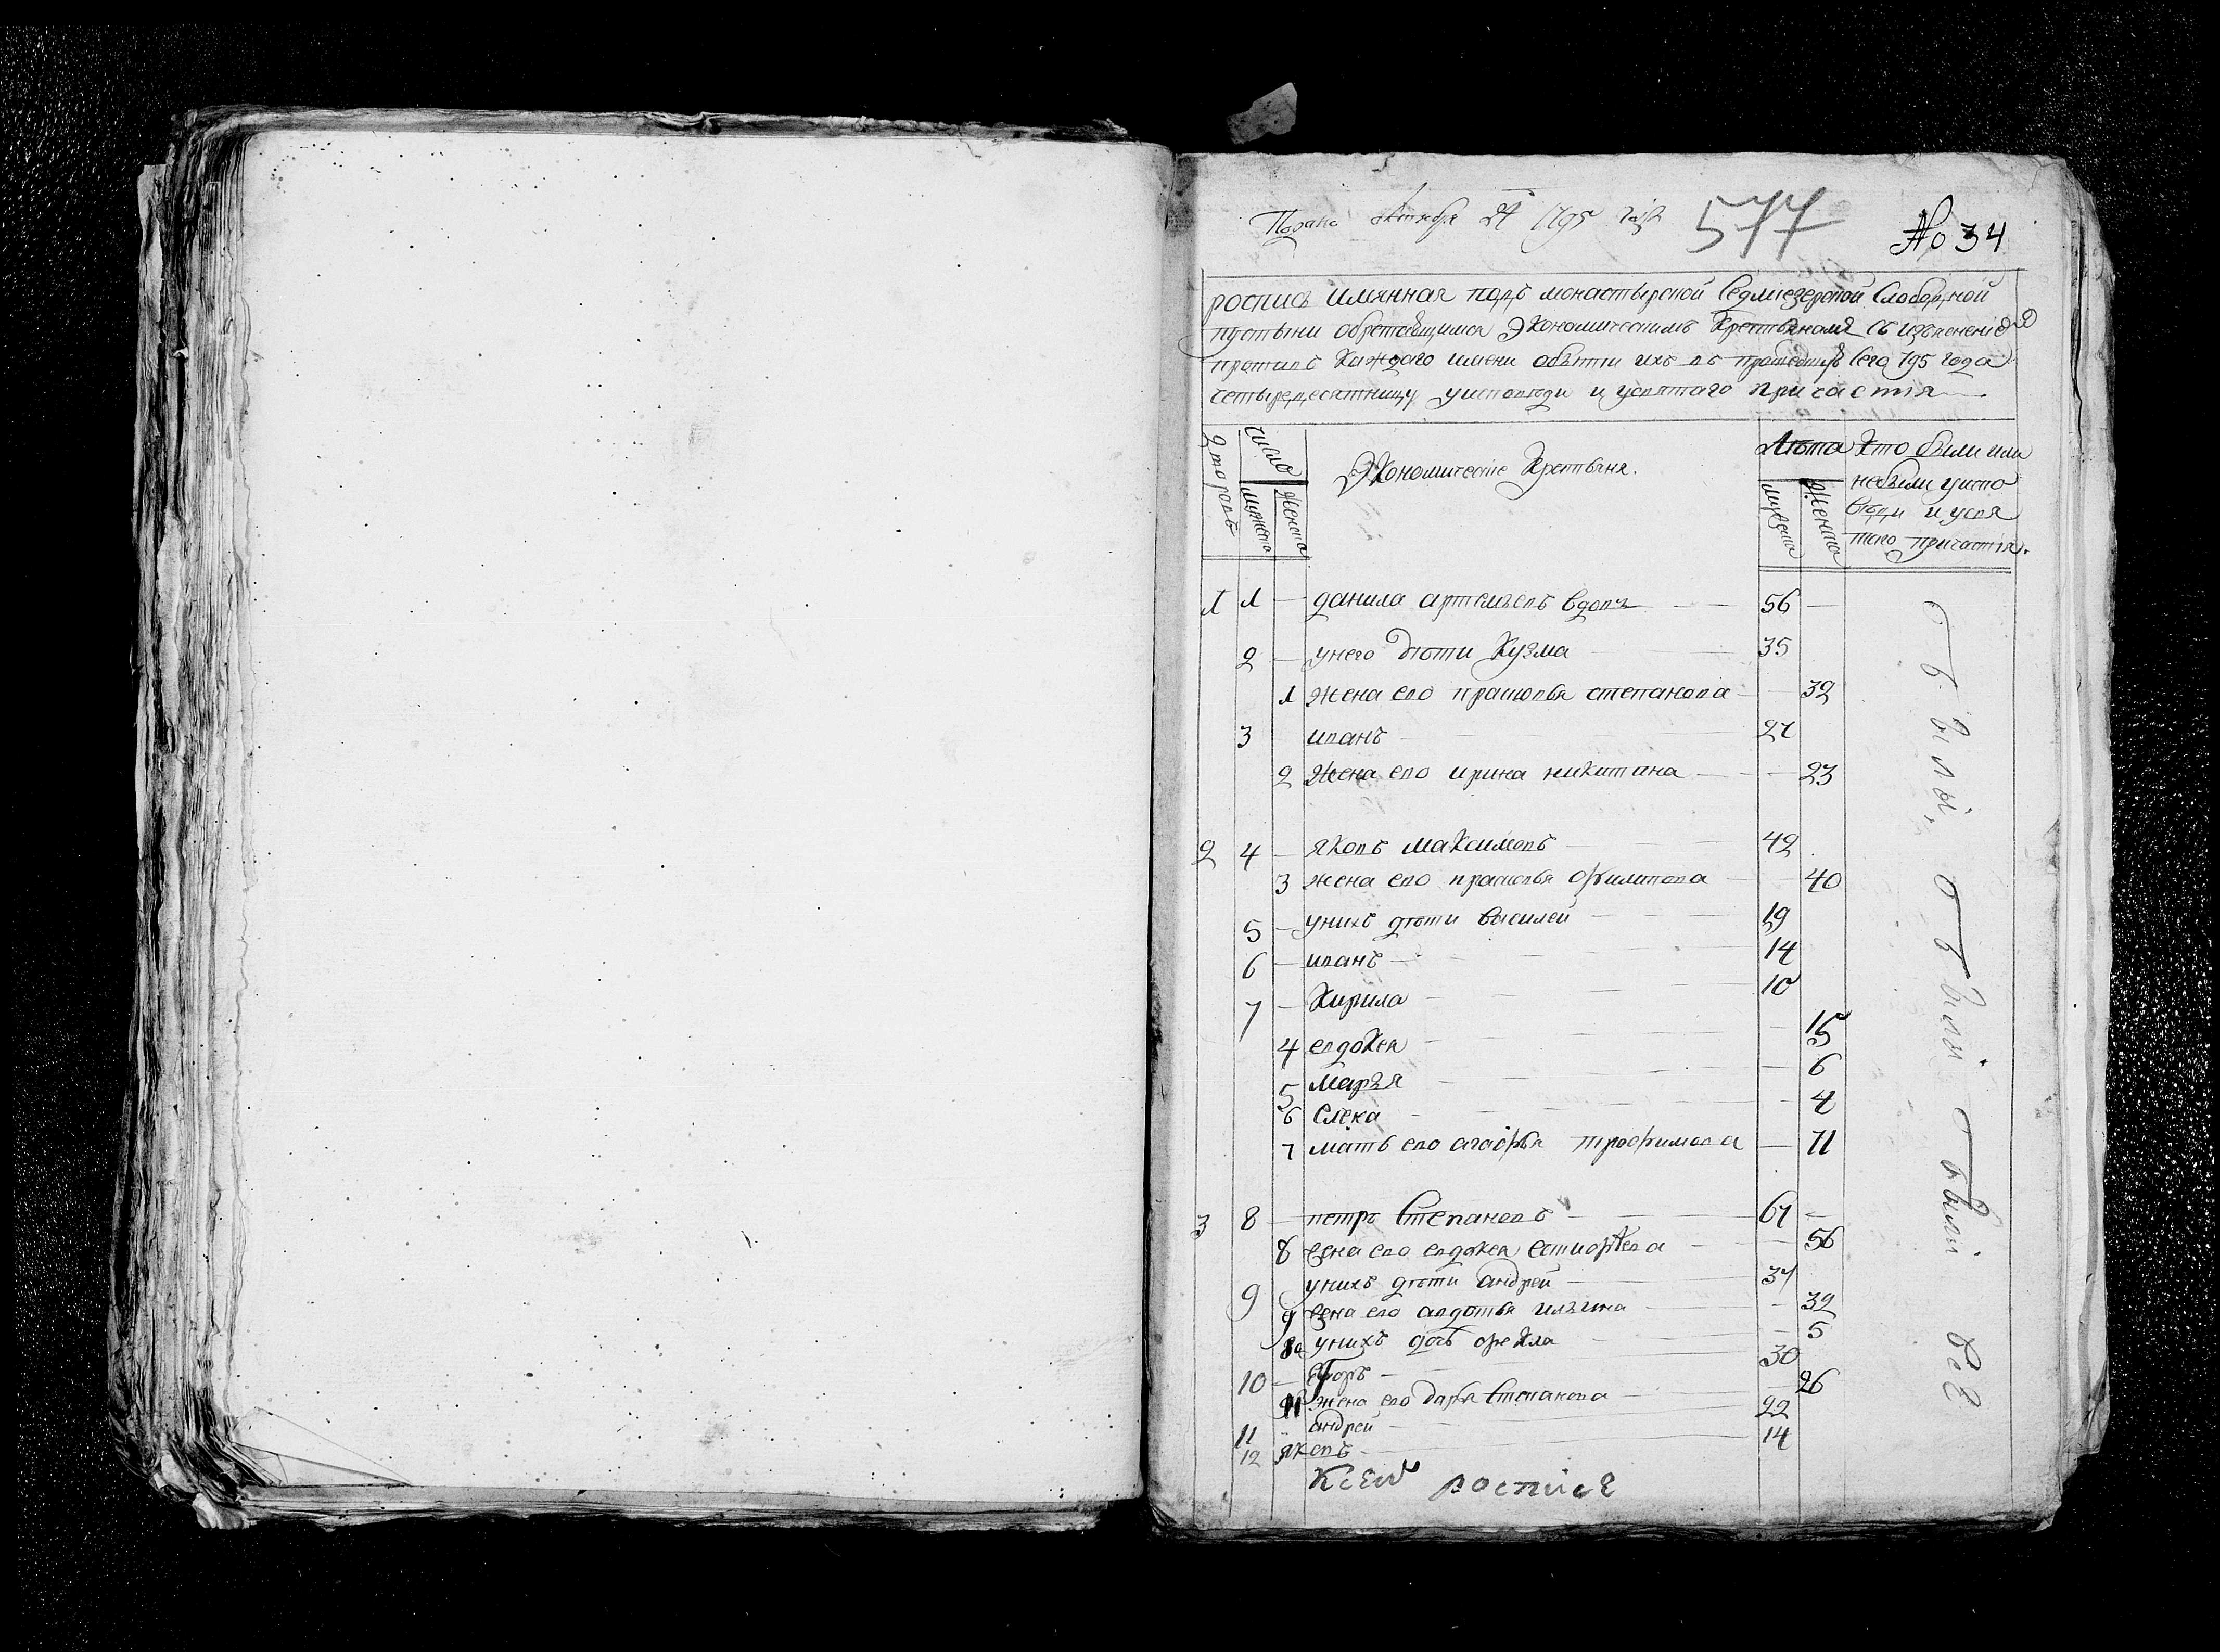 Подано октября 27 1795 года
577
No 34
роспись имянная подъ монастырской Седмиезерской Слободной
пустыни обретающимся Экономическимъ Крестьянамъ съ изъяснениемъ
противъ Каждаго имени обытти ихъ въ прошедшую сего 795 года
четыредесятницу уисповѣди и усвятаго причастія
Дворовъ
число
мужеска
женска
Экономическіе Крестьяня.
Лѣта
мужеска
Женска
Кто были или
небыли уиспо
вѣди и усвя
таго причастія.
1 1 — данила артемьевъ вдовъ — 56 —
2 — унего дѣти Кузма — 35
1 Жена ево прасковья степанова — 32
3 иванъ — 27
2 Жена ево ирина никитина — 23
2 4 — яковъ маКсимовъ — 42
3 жена ево прасковья филипова — 40
5 — унихъ дѣти василей — 19
6 — иванъ — 14
7 — Кирила — 10
4 евдоКея — 15
5 марья — 6
6 елена — 4
7 мать ево агафья трофимова — 71
3 8 — петръ Степановъ — 67 —
8 жена ево евдокея — 56
9 унихъ дѣти андрей — 37
9 жена ево авдотья ильина — 32
10 унихъ дочь фекла — 5
10 — егоръ — 30
11 жена ево дарья Степанова — 26
11 андрей — 22
12 яковъ — 14
Ксей росписе
были, были были все